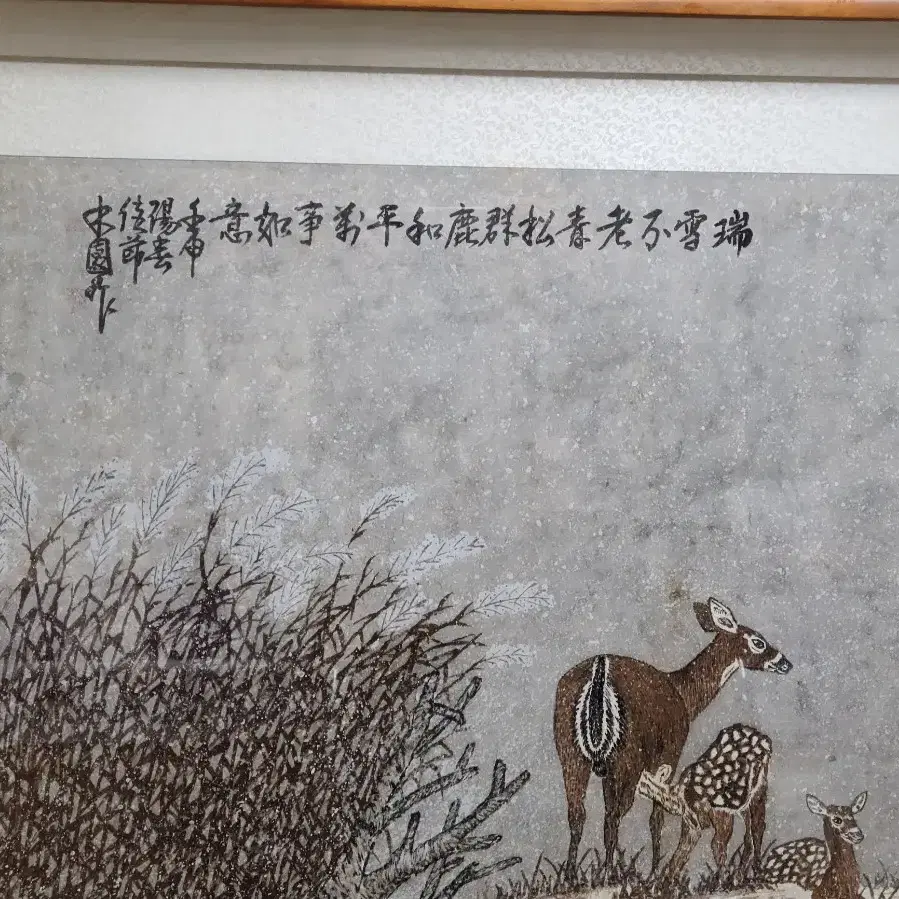 瑞雪不老青松群鹿和平萬事如意
壬申
陽春
佳節
中園作